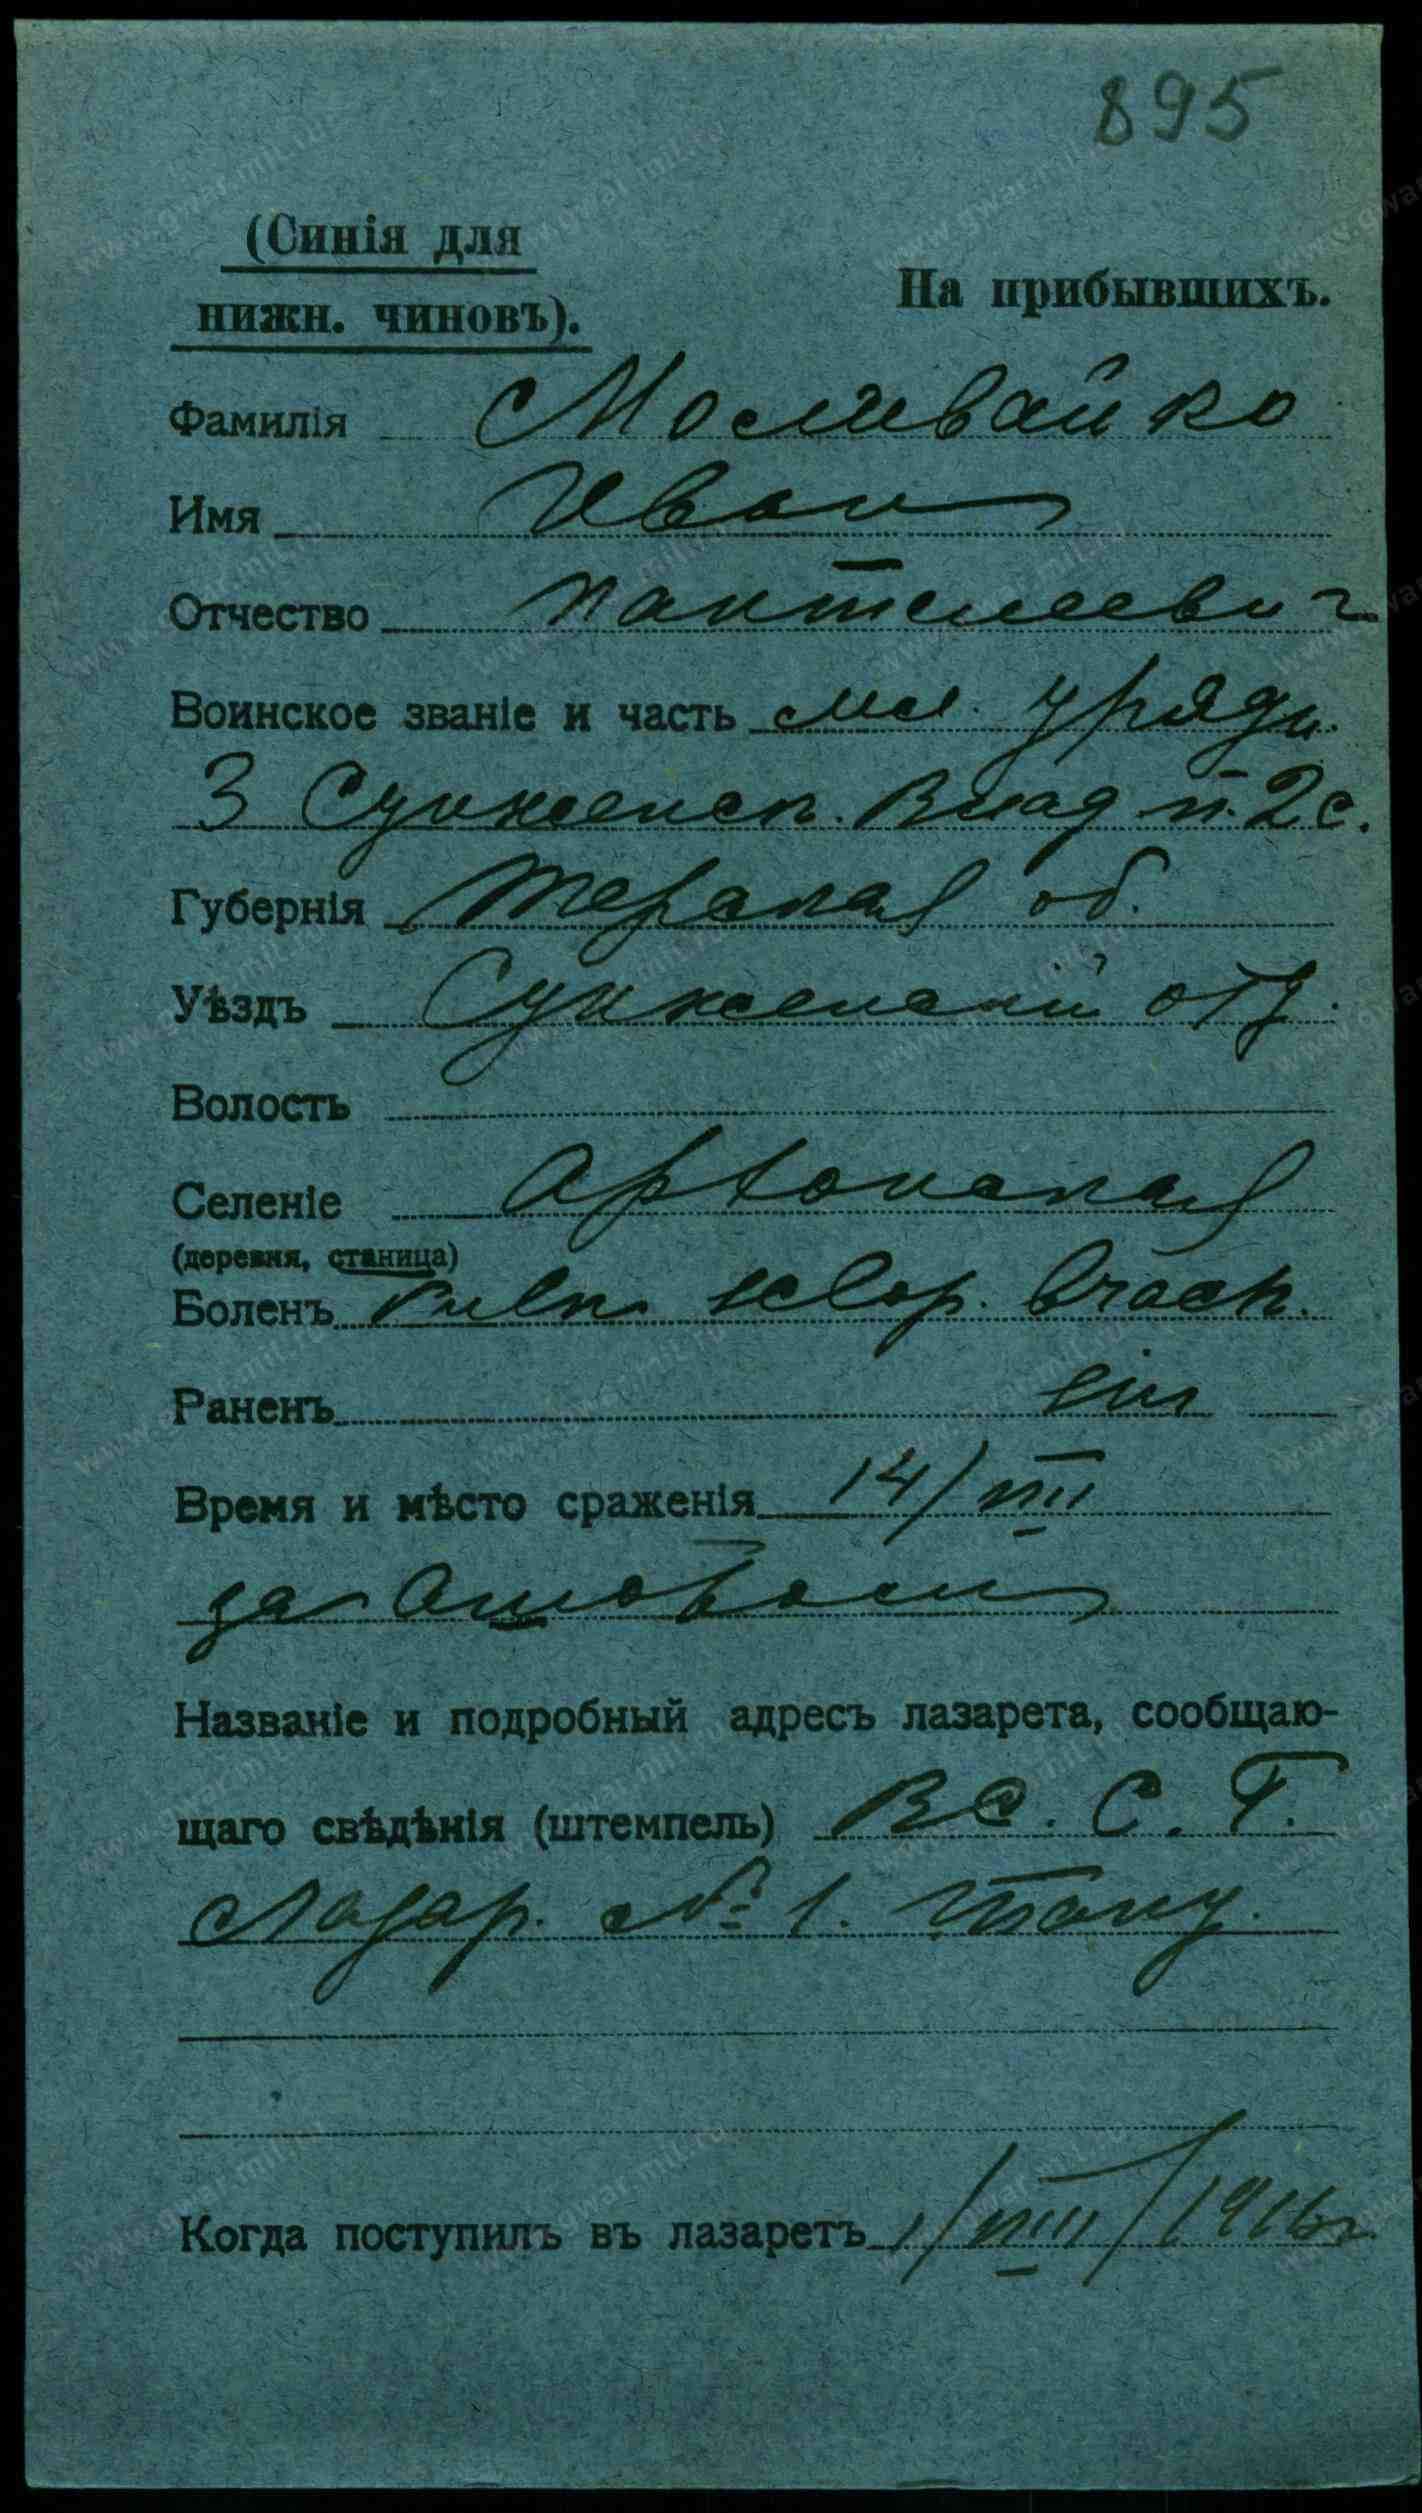 895
(Синія для
нижн. чиновъ).
На прибывшихъ.
Фамилія Моливайко
Имя Иван
Отчество Пантелеевич
Воинское званіе и часть мл. урядн.
3 Сунженск. Влад п. 2 с.
Губернія Терская об.
Уѣздъ Сунженский отд.
Волость
Селеніе Арҍонская
(деревня, станица)
Боленъ Vuln. sclop. brach.
Раненъ sin
Время и мѣсто сраженія 14/VII
за
Названіе и подробный адресъ лазарета, сообщаю-
щаго свѣдѣнія (штемпель) ВС. С. Г.
Лазар. № 1.
Когда поступилъ въ лазаретъ 1/VIII/1916 г.